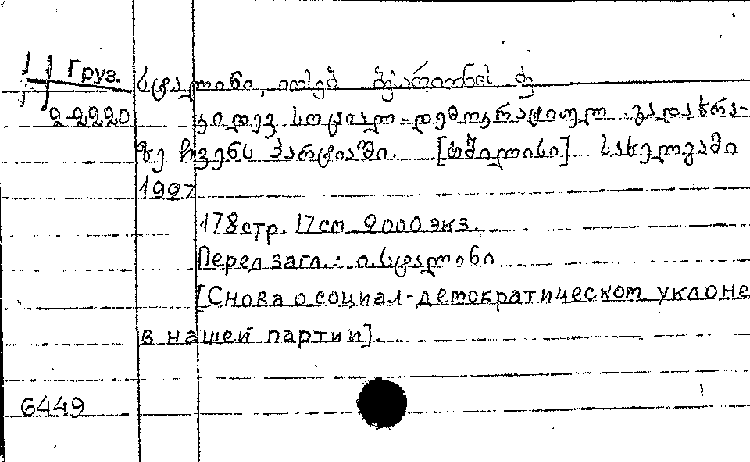 Груз. სტალინი, იოსებ ბესარიონის ძე
22220 კიდევ სოციალ-დემოკრატიულ გადახრა-
ზე ჩვენს პარტიაში. [თბილისი] სახელგამი
1927
178 стр. 17 см 2000 экз.
Перед загл.: ი. სტალინი
[Снова о социал-демократическом уклоне
в нашей партии].
6449